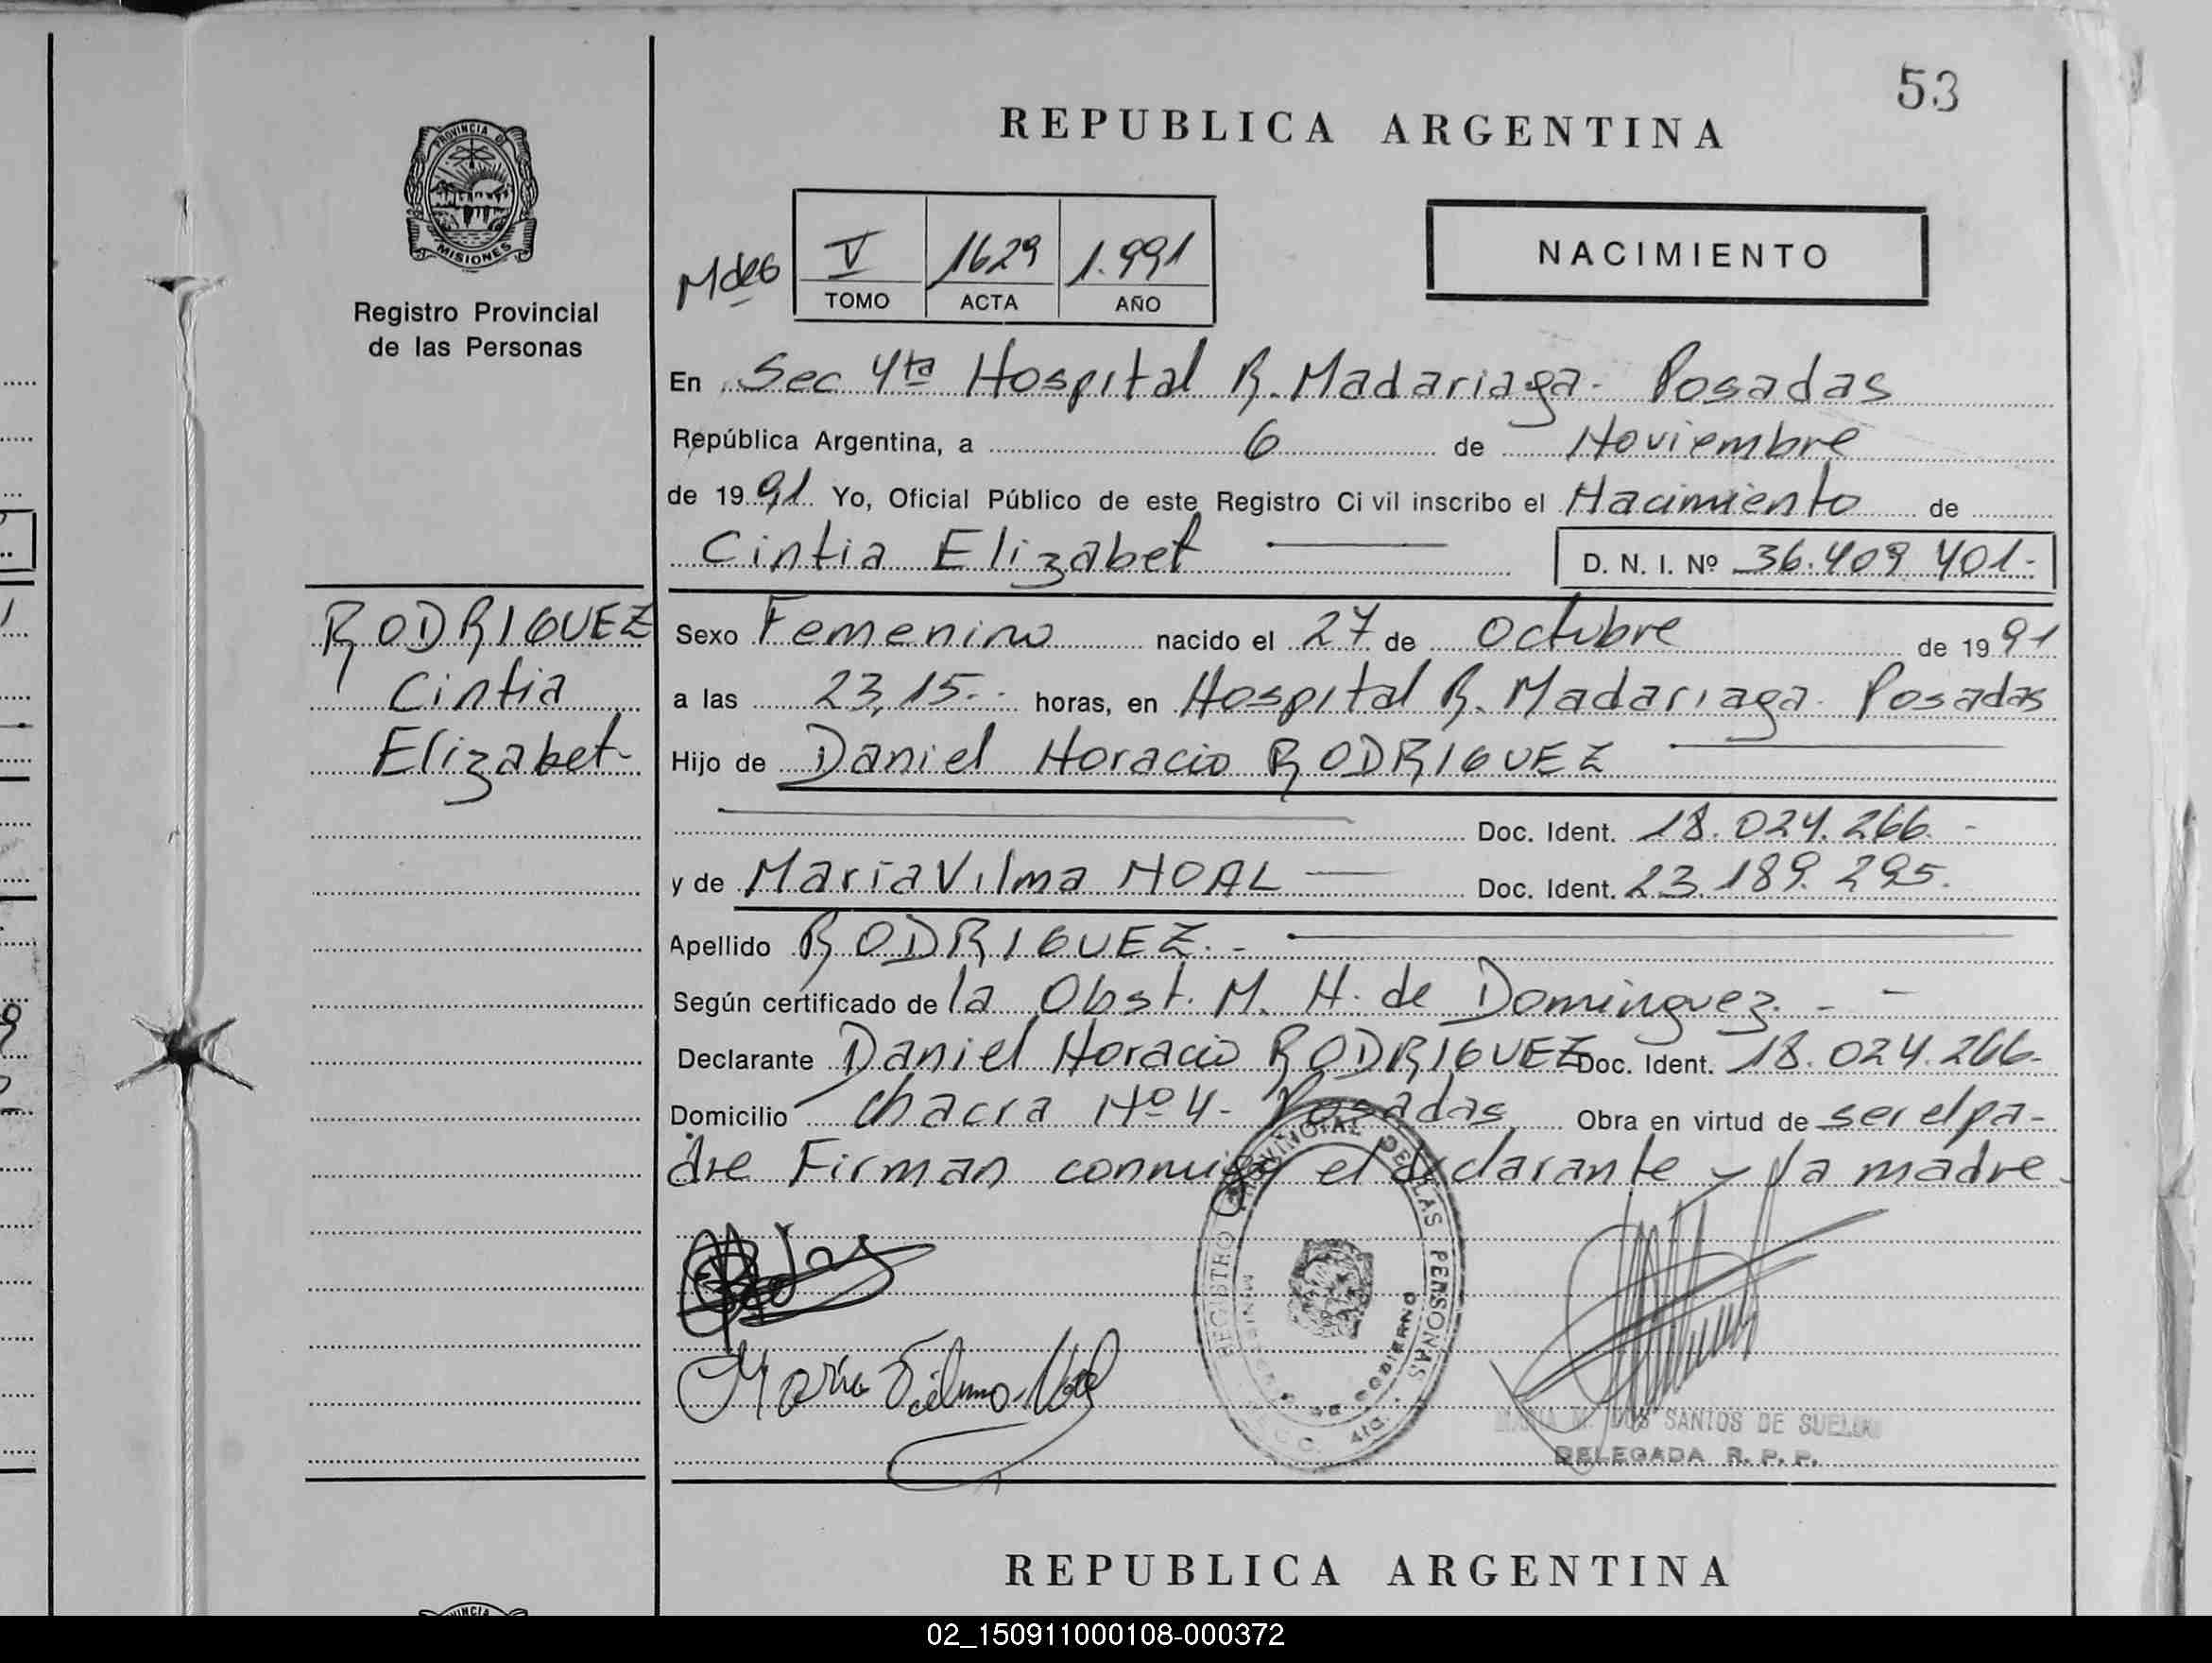 53
REPUBLICA ARGENTINA
PROVINCIA DE
MISIONES
Registro Provincial
de las Personas
V 1629 1.991
TOMO ACTA AÑO
NACIMIENTO
En Sec 4ta Hospital R. Madariaga - Posadas
República Argentina, a 6 de Noviembre
de 1991 Yo, Oficial Público de este Registro Civil inscribo el Nacimiento de
Cintia Elizabet D. N. I. Nº 36.409 401.-
RODRIGUEZ
Cintia
Elizabet-
Sexo Femenino nacido el 27 de Octubre de 1991
a las 23,15.- horas, en Hospital R. Madariaga - Posadas
Hijo de Daniel Horacio RODRIGUEZ
Doc. Ident. 18.024.266.-
y de Maria Vilma NOAL Doc. Ident. 23.189.295.
Apellido RODRIGUEZ.-
Según certificado de la Obst. M. H. de Dominguez.- -
Declarante Daniel Horacio RODRIGUEZ Doc. Ident. 18.024.266-
Domicilio Chacra Nº 4- Posadas Obra en virtud de ser el pa-
dre Firman conmigo el declarante y la madre.
REGISTRO PROVINCIAL DE LAS PERSONAS
MINISTERIO DE GOBIERNO
Maria Vilma Noal
DOS SANTOS DE
DELEGADA R. P. P.
REPUBLICA ARGENTINA
02_150911000108-000372